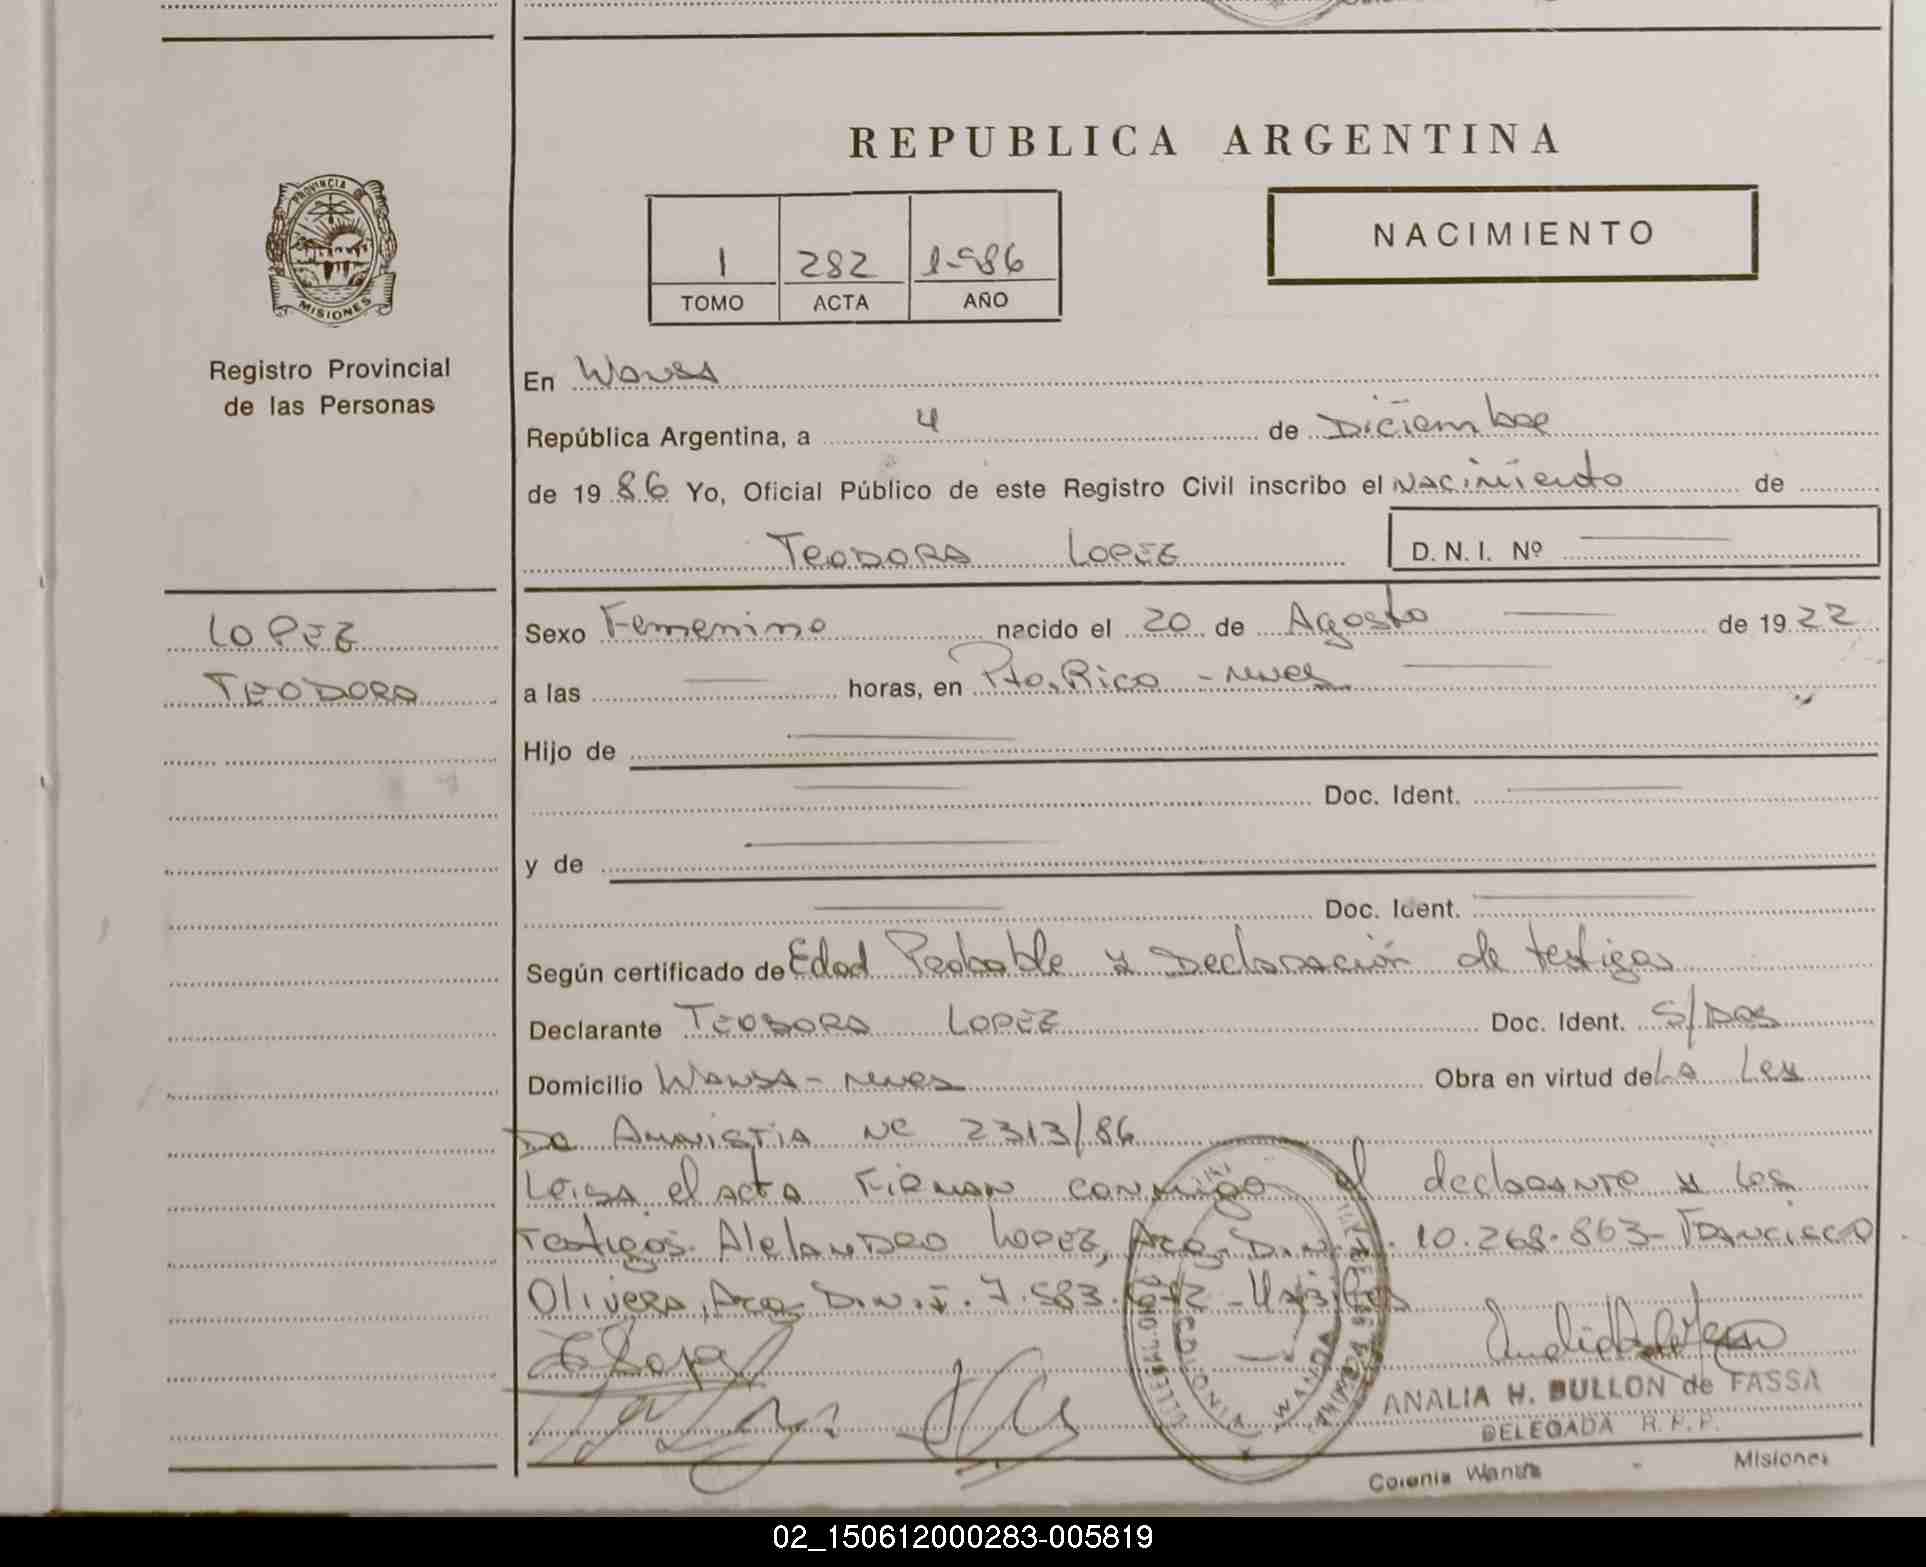 REPUBLICA ARGENTINA
PROVINCIA DE
MISIONES
Registro Provincial
de las Personas
1 282 1986
TOMO ACTA AÑO
NACIMIENTO
En Wanda
República Argentina, a 4 de Diciembre
de 19 86 Yo, Oficial Público de este Registro Civil inscribo el Nacimiento de
TEODORA LOPEZ D. N. I. Nº
LOPEZ
TEODORA
Sexo Femenino nacido el 20 de Agosto de 19 22
a las horas, en Pto. Rico - mnes
Hijo de
Doc. Ident.
y de
Doc. Ident.
Según certificado de Edad Probable y Declaración de testigos
Declarante TEODORA LOPEZ Doc. Ident. S/Dos
Domicilio Wanda - mnes Obra en virtud de La Ley
De Amnistia Nº 2313/86
Leida el acta Firman conmigo el declarante y los
testigos Alejandro Lopez, Arg. D.N.I. 10.268.863 - Francisco
Olivera, Arg. D.N.I. 7.583.
WANDA
ANALIA H. BULLON de FASSA
DELEGADA R. P. P.
Colonia Wanda Misiones
02_150612000283-005819